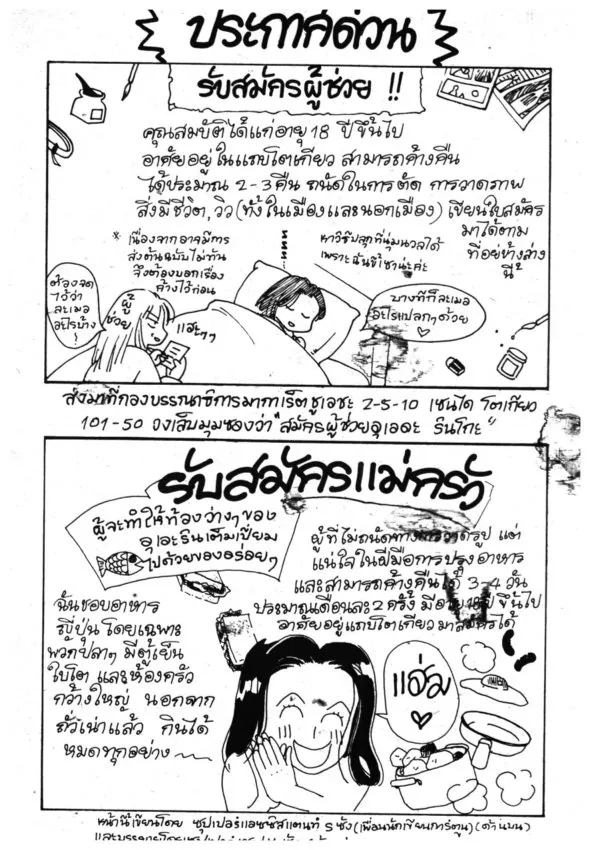 ประกาศด่วน
รับสมัครผู้ช่วย !!
คุณสมบัติได้แก่อายุ 18 ปีขึ้นไป
อาศัยอยู่ในแถบโตเกียว สามารถค้างคืน
ได้ประมาณ 2-3 คืน ถนัดในการตัด การวาดภาพ
สิ่งมีชีวิต, วิว (ทั้งในเมืองและนอกเมือง) เขียนใบสมัคร
มาได้ตาม
ที่อยู่ข้างล่าง
นี้
* เนื่องจากอาจมีการ
ส่งต้นฉบับไม่ทัน
จึงต้องบอกเรื่อง
ค้างไว้ก่อน
zzz
หาวิธีปลุกที่นุ่มนวลได้
เพราะฉันขี้เซาน่ะค่ะ
ต้องจด
ไว้ว่า
ละเมอ
อะไรบ้าง
ผู้
ช่วย
แฮะๆ
บางทีก็ละเมอ
อะไรแปลกๆด้วย
♡
ส่งมาที่กองบรรณาธิการมากาเร็ตชูเอชะ 2-5-10 เซนได โตเกียว
101-50 วงเล็บมุมซองว่า "สมัครผู้ช่วยอุเอดะ รินโกะ"
รับสมัครแม่ครัว
ผู้จะทำให้ท้องว่างๆของ
อุเอะรินเต็มเปี่ยม
ไปด้วยของอร่อยๆ
ผู้ที่ไม่ถนัดทางการวาดรูป แต่
แน่ใจในฝีมือการปรุงอาหาร
และสามารถค้างคืนได้ 3-4 วัน
ประมาณเดือนละ 2 ครั้ง มีอายุ 18 ปี ขึ้นไป
อาศัยอยู่แถบโตเกียวมาสมัครได้
ฉันชอบอาหาร
ญี่ปุ่น โดยเฉพาะ
พวกปลาๆ มีตู้เย็น
ใบโต และห้องครัว
กว้างใหญ่ นอกจาก
ถั่วเน่าแล้ว กินได้
หมดทุกอย่าง
แฮ่ม
♡
หน้านี้เขียนโดย ซุปเปอร์แอซซิสแตนท์ S ซัง (เพื่อนนักเขียนการ์ตูน) (ด้านบน)